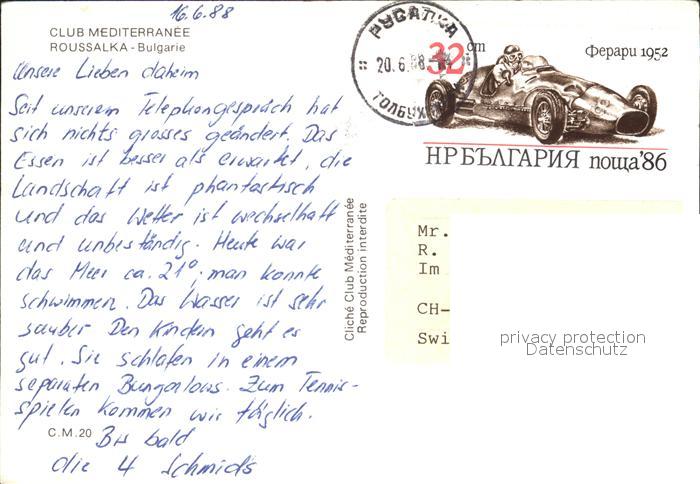 16.6.88
CLUB MEDITERRANÉE
ROUSSALKA - Bulgarie
Unsere Lieben daheim
Seit unserem Telephongespräch hat
sich nichts grosses geändert. Das
Essen ist besser als erwartet, die
Landschaft ist phantastisch
und das Wetter ist wechselhaft
und unbeständig. Heute war
das Meer ca. 21°, man konnte
schwimmen. Das Wasser ist sehr
sauber. Den Kindern geht es
gut. Sie schlafen in einem
separaten Bungerlows. Zum Tennis-
spielen kommen wir täglich.
C.M.20
Bis bald
die 4 Schmid's
Cliché Club Méditerranée
Reproduction interdite
РУСАЛКА
20.6.88
ТОЛБУХ
32 cm
Ферари 1952
НРБЪЛГАРИЯ поща'86
Mr.
R.
Im
CH-
Swi
privacy protection
Datenschutz